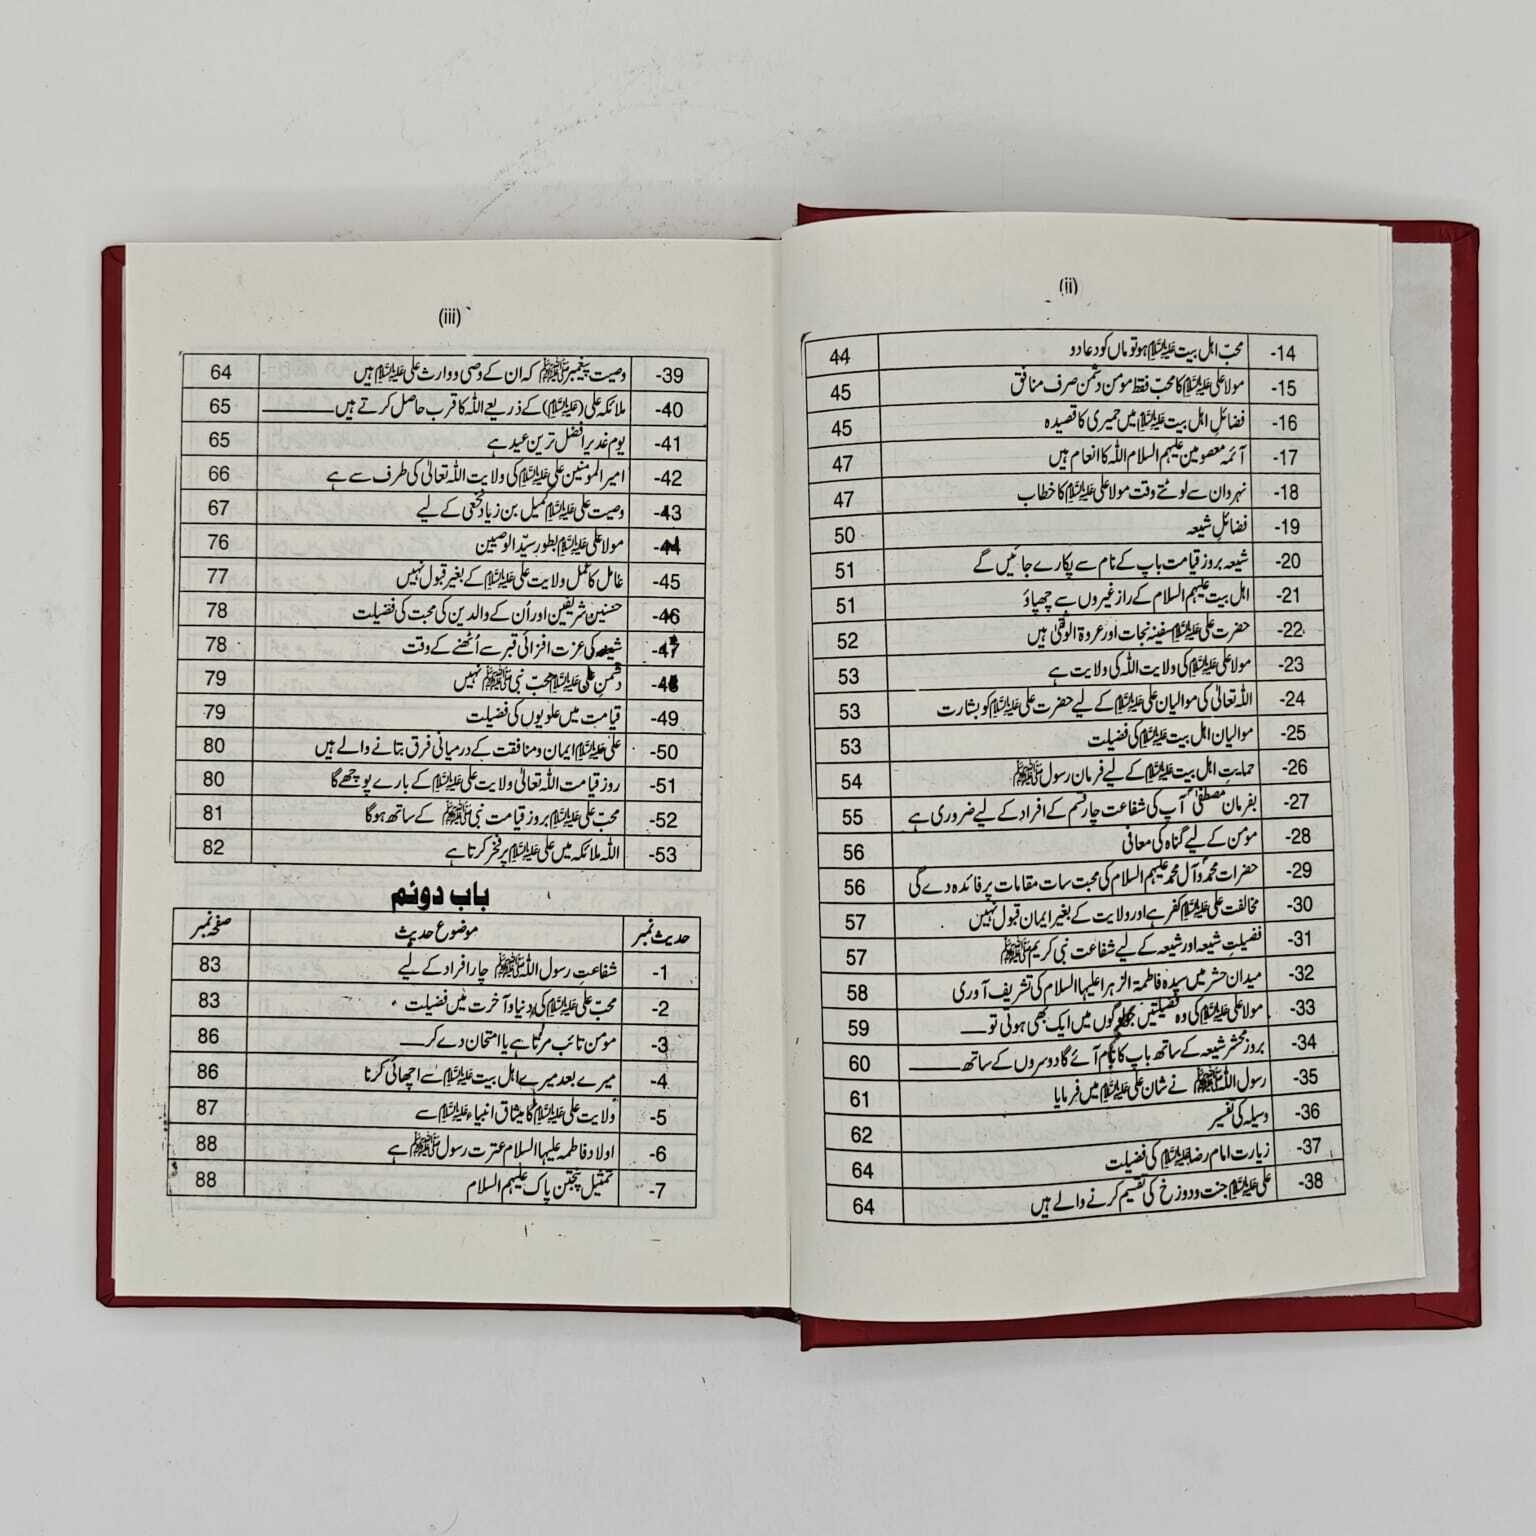 (ii)
14- محبّ اہل بیت علیہ السلام ہو تو ماں کو دعا دو 44
15- مولا علی علیہ السلام کا محبّ فقط مومن دشمن صرف منافق 45
16- فضائل اہل بیت علیہ السلام میں حمیری کا قصیدہ 45
17- آئمہ معصومین علیہم السلام اللہ کا انعام ہیں 47
18- نہروان سے لوٹتے وقت مولا علی علیہ السلام کا خطاب 47
19- فضائلِ شیعہ 50
20- شیعہ بروز قیامت باپ کے نام سے پکارے جائیں گے 51
21- اہل بیت علیہم السلام کے راز غیروں سے چھپاؤ 51
22- حضرت علی علیہ السلام سفینہ نجات اور عروۃ الوثقیٰ ہیں 52
23- مولا علی علیہ السلام کی ولایت اللہ کی ولایت ہے 53
24- اللہ تعالیٰ کی موالیان علی علیہ السلام کے لیے حضرت علی علیہ السلام کو بشارت 53
25- موالیان اہل بیت علیہ السلام کی فضیلت 53
26- حمایتِ اہل بیت علیہ السلام کے لیے فرمان رسول ﷺ 54
27- بفرمان مصطفیٰ آپ کی شفاعت چار قسم کے افراد کے لیے ضروری ہے 55
28- مؤمن کے لیے گناہ کی معافی 56
29- حضرات محمدؐ و آل محمد علیہم السلام کی محبت سات مقامات پر فائدہ دے گی 56
30- مخالفت علی علیہ السلام کفر ہے اور ولایت کے بغیر ایمان قبول نہیں 57
31- فضیلتِ شیعہ اور شیعہ کے لیے شفاعت نبی کریم ﷺ 57
32- میدان حشر میں سیدہ فاطمۃ الزہرا علیہا السلام کی تشریف آوری 58
33- مولا علی علیہ السلام کی وہ فضیلتیں لوگوں میں ایک بھی ہوتی تو ـــــ 59
34- بروز محشر شیعہ کے ساتھ باپ کا نام آئے گا دوسروں کے ساتھ ـــــ 60
35- رسول اللہ ﷺ نے شان علی علیہ السلام میں فرمایا 61
36- وسیلہ کی تفسیر 62
37- زیارت امام رضا علیہ السلام کی فضیلت 64
38- علی علیہ السلام جنت و دوزخ کی تقسیم کرنے والے ہیں 64
(iii)
39- وصیت پیغمبر ﷺ کہ ان کے وصی و وارث علی علیہ السلام ہیں 64
40- ملائکہ علی (علیہ السلام) کے ذریعے اللہ کا قرب حاصل کرتے ہیں ـــــ 65
41- یوم غدیر افضل ترین عید ہے 65
42- امیر المومنین علی علیہ السلام کی ولایت اللہ تعالیٰ کی طرف سے ہے 66
43- وصیت علی علیہ السلام کمیل بن زیاد نخعی کے لیے 67
44- مولا علی علیہ السلام بطور سیّد الوصیین 76
45- عامل کا عمل ولایت علی علیہ السلام کے بغیر قبول نہیں 77
46- حسنین شریفین اور اُن کے والدین کی محبت کی فضیلت 78
47- شیعہ کی عزت افزائی قبر سے اُٹھنے کے وقت 78
48- دشمن علی علیہ السلام محبّ نبی ﷺ نہیں 79
49- قیامت میں علویوں کی فضیلت 79
50- علی علیہ السلام ایمان و منافقت کے درمیانی فرق بتانے والے ہیں 80
51- روز قیامت اللہ تعالیٰ ولایت علی علیہ السلام کے بارے پوچھے گا 80
52- محبّ علی علیہ السلام بروز قیامت نبی ﷺ کے ساتھ ہوگا 81
53- اللہ ملائکہ میں علی علیہ السلام پر فخر کرتا ہے 82
باب دوئم
حدیث نمبر موضوع حدیث صفحہ نمبر
1- شفاعتِ رسول اللہ ﷺ چار افراد کے لیے 83
2- محبّ علی علیہ السلام کی دنیا و آخرت میں فضیلت 83
3- مومن تائب مرتا ہے یا امتحان دے کر ـــــ 86
4- میرے بعد میرے اہل بیت علیہ السلام سے اچھائی کرنا 86
5- ولایت علی علیہ السلام کا میثاق انبیاء علیہ السلام سے 87
6- اولاد فاطمہ علیہا السلام عترت رسول ﷺ ہے 88
7- تمثیل پنجتن پاک علیہم السلام 88